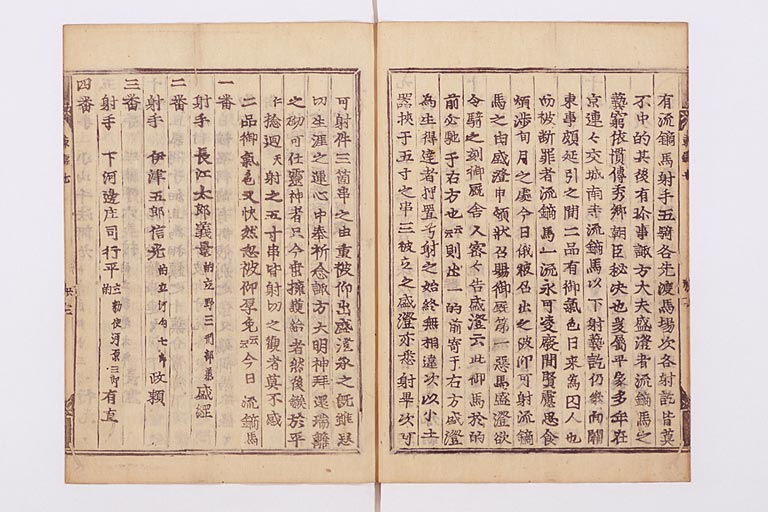 有流鏑馬射手五騎各先渡馬場次各射訖皆莫
不中的其後有珎事諏方大夫盛澄者流鏑馬之
藝窮依慣傳秀郷朝臣秘决也爰属平家多年在
京連々交城南寺流鏑馬以下射藝訖仍參向關
東事頗延引之間二品有御氣色日来為囚人也
而被断罪者流鏑馬一流永可凌廢間賢慮思食
煩渉旬月之處今日俄被召出之被仰可射流鏑
馬之由盛澄申領状召賜御厩第一惡馬盛澄欲
令騎之刻御厩舎人密々告盛澄云此御馬於的
前必馳于右方也云々則出一的前寄于右方盛澄
為生得達者押置兮射之始終無相違次以小土
器挟于五寸之串三被立之盛澄亦悉射畢次可
可射件三箇串之由重被仰出盛澄承之既雖思
切生涯之運心中奉祈念諏方大明神拜還瑞籬
之砌可仕靈神者只今垂擁護給者然後鏃於平
仁捻廻天射之五寸串皆射切之觀者莫不感
二品御氣色又快然忽被仰厚免云々今日流鏑馬
一番
射手 長江太郎義景 的立 野三刑部丞盛經
二番
射手 伊津五郎信光 的立 河匂七郎政頼
三番
射手 下河邊庄司行平 的立 勅使河原三郎有直
四番